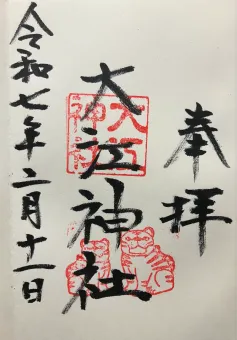 奉拝
大江神社
大江
神社
令和七年二月十一日